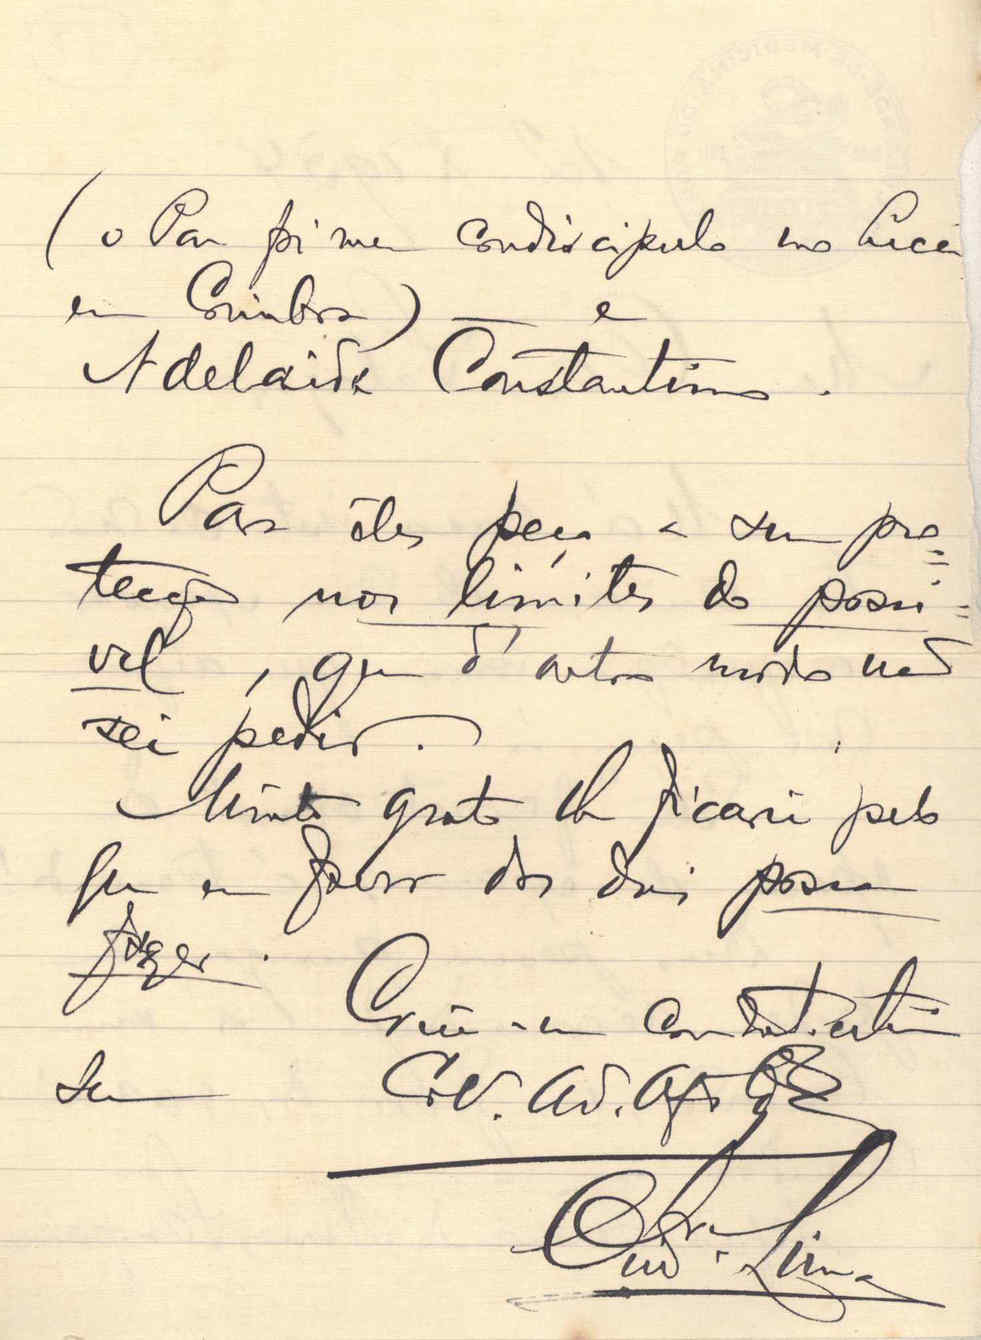 (o Pai foi meu condiscipulo no Liceu
em Coimbra) — e
Adelaide Constantino.
Para êles peço a sua pro=
tecção nos limites do possi=
vel, que d'outro modo não
sei pedir.
Muito grato lhe ficarei pelo
que em favor dos dois possa
fazer.
Creia-me com
seu Col. Ad.
Lima